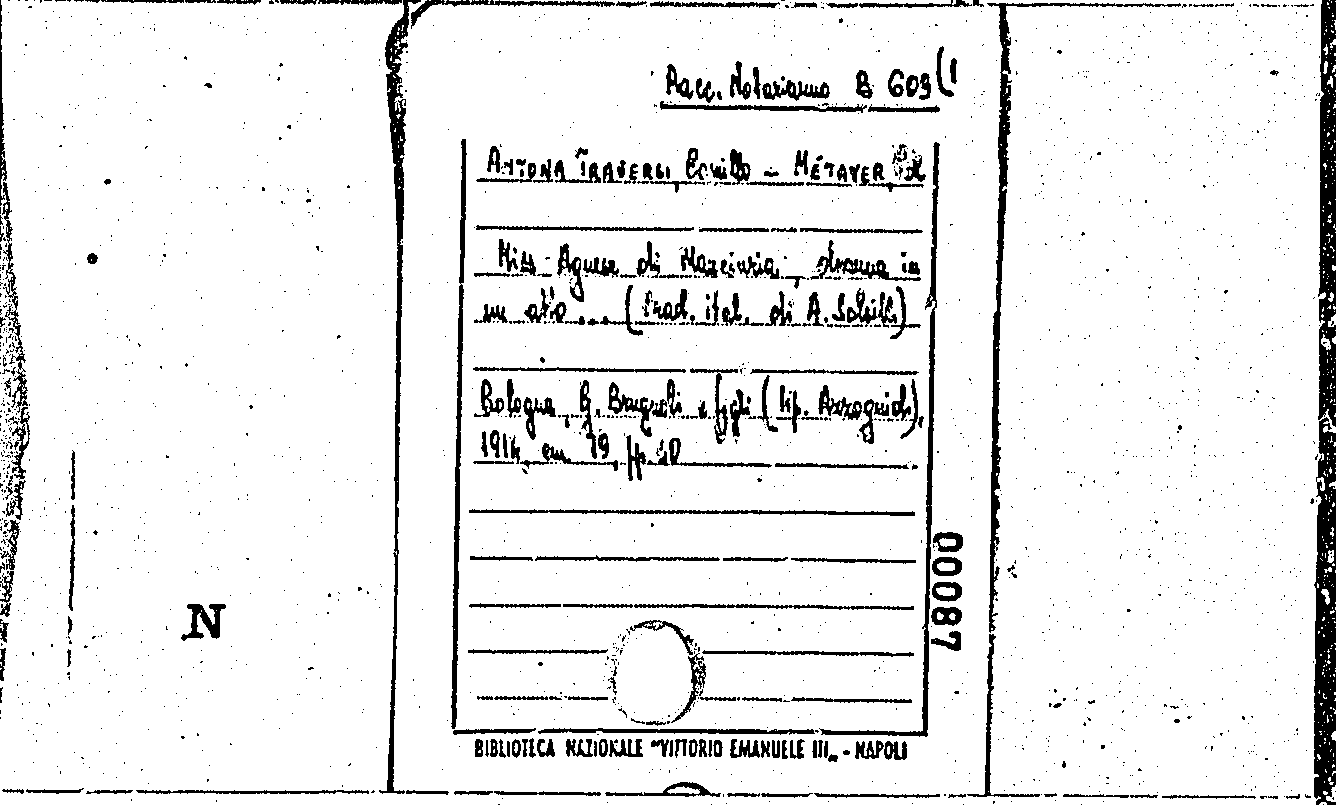 Racc. Notarianno B 603(1
ANTONA TRAVERSI, Camillo - MÉTAYER,
Miss Agnese di Marciuria, drama in
un atto... (Trad. ital. di A.
Bologna, G. Brugnoli e figli (tip. Azzoguidi),
1914, cm. 19, pp. 40
00087
N
BIBLIOTECA NAZIONALE "VITTORIO EMANUELE III„ - NAPOLI